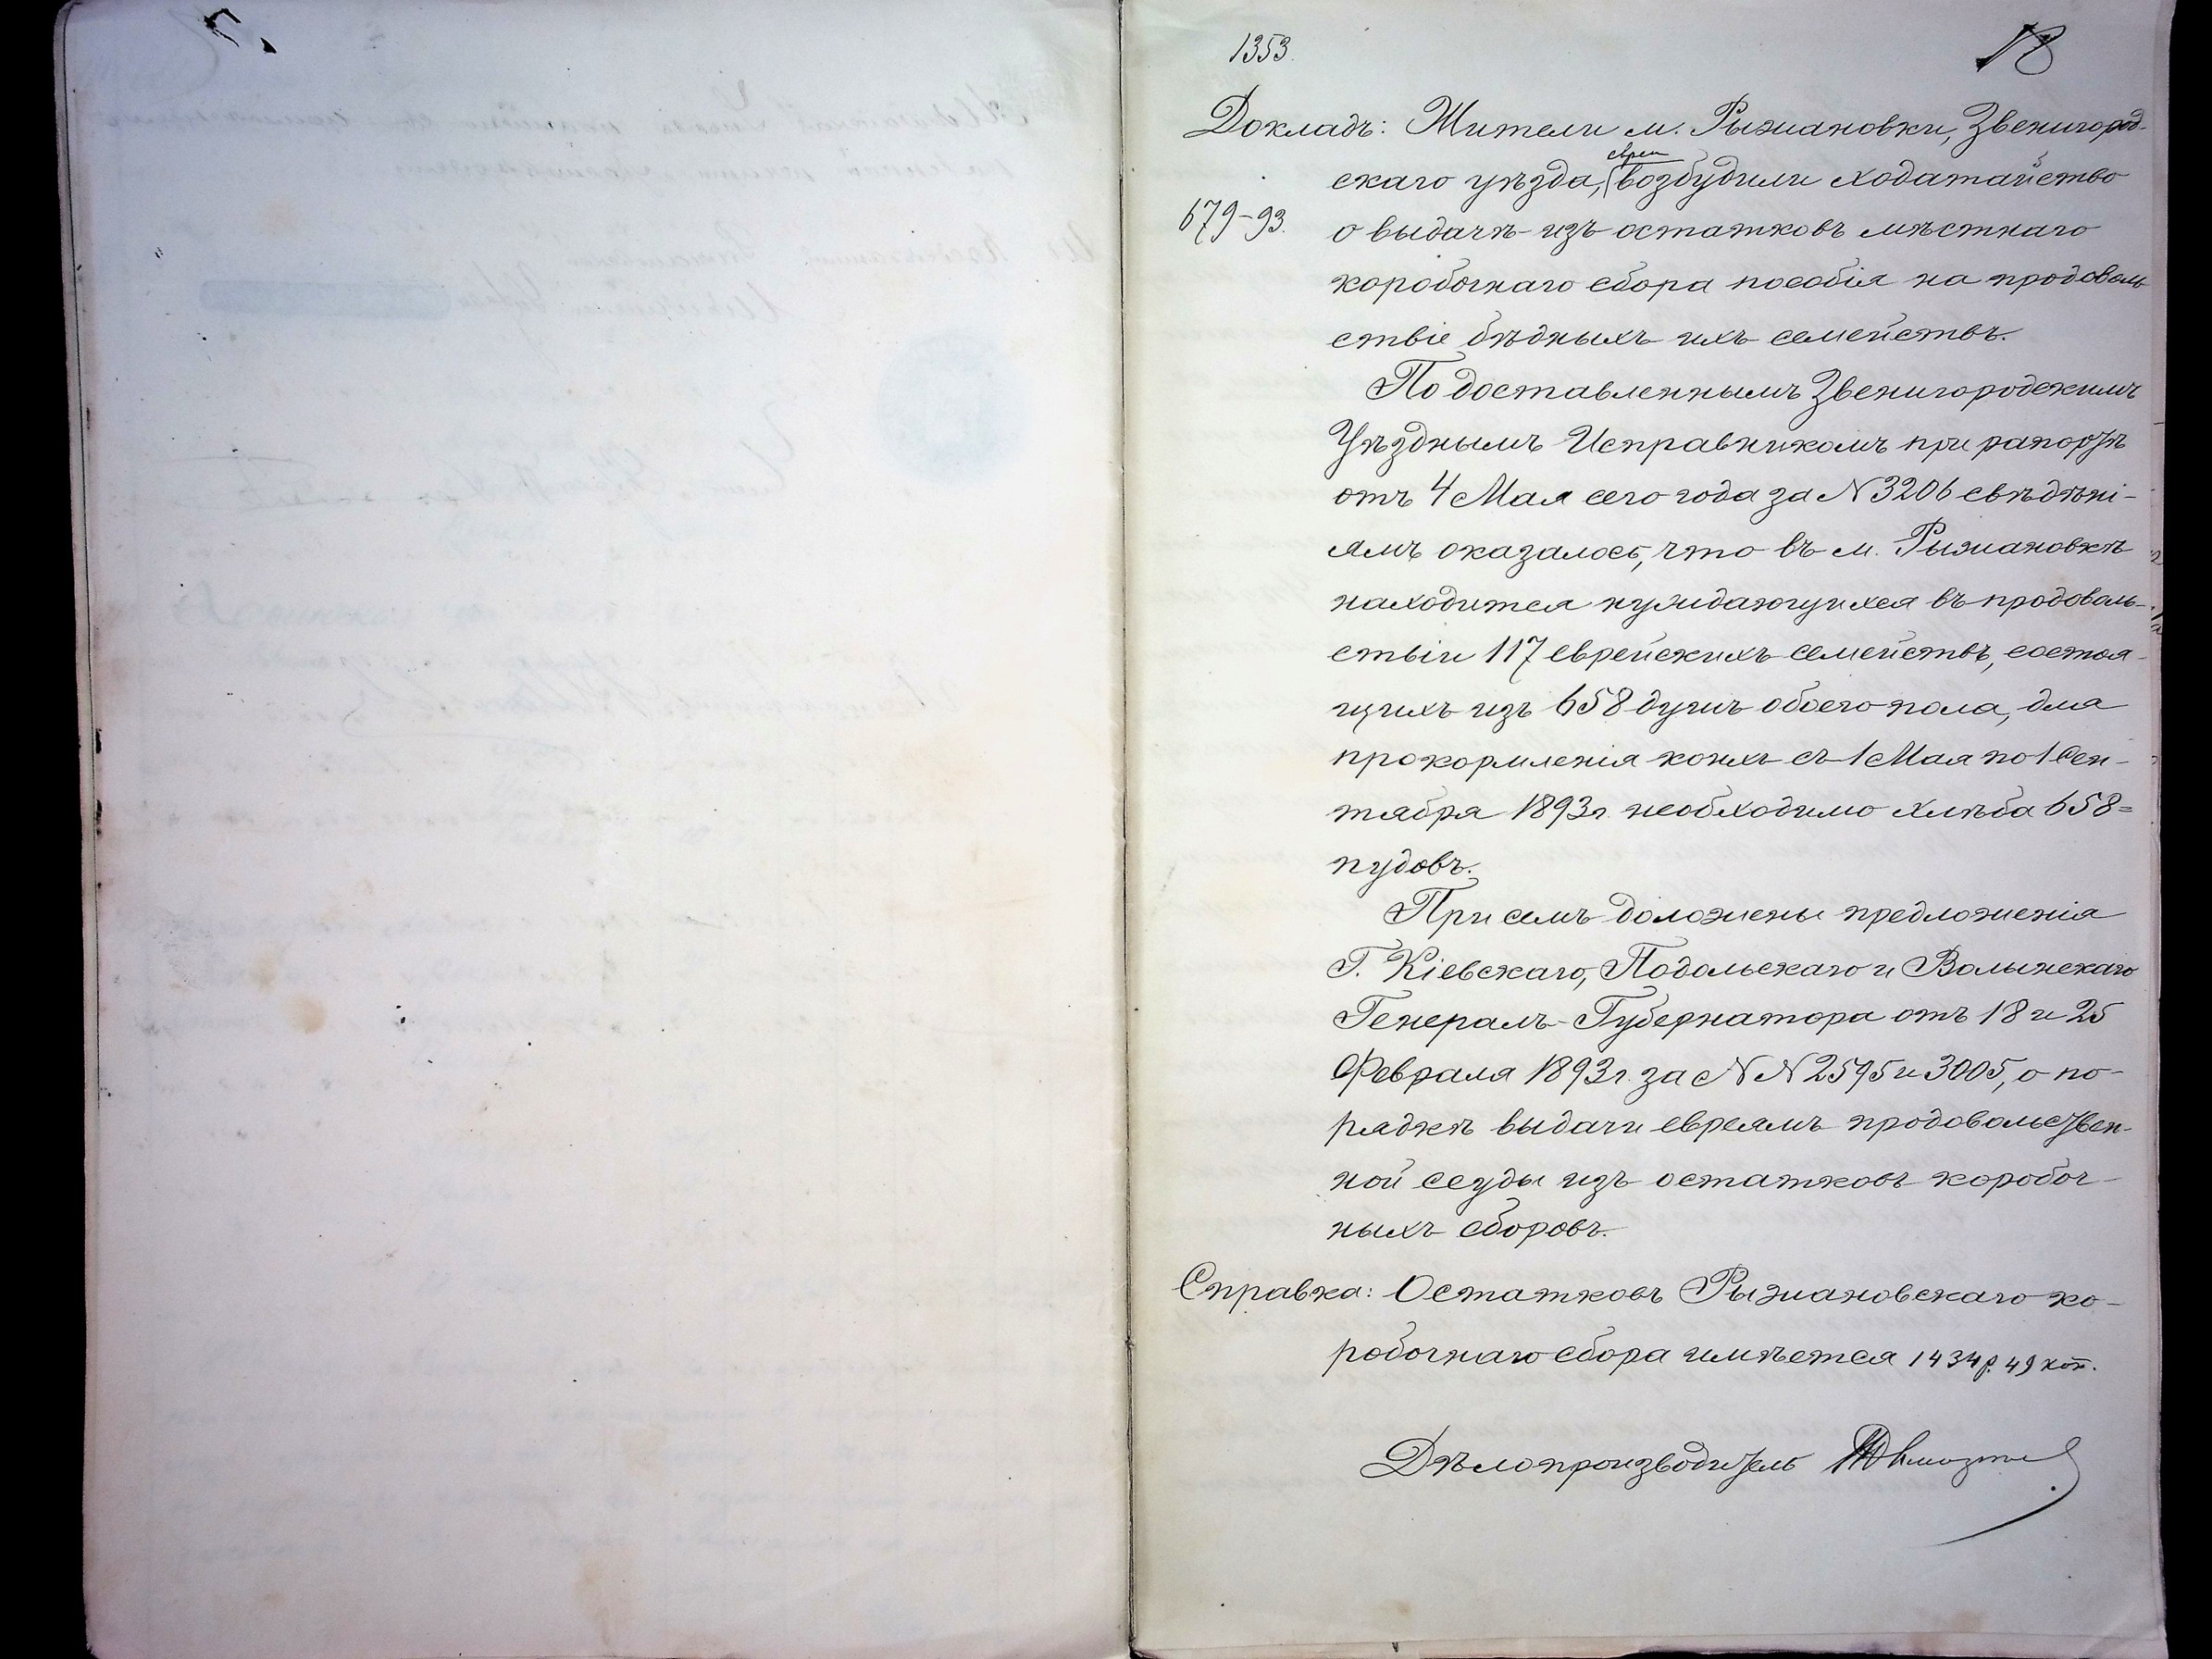 1353.
18
Докладъ: Жители м. Рыжановки, Звенигород-
евреи
скаго уѣзда, возбудили ходатайство
679-93.
о выдачѣ изъ остатковъ мѣстнаго
коробочнаго сбора пособія на продоволь
ствіе бѣдныхъ ихъ семействъ.
По доставленнымъ Звенигородскимъ
Уѣзднымъ Исправникомъ при рапортѣ
отъ 4 Мая сего года за N 3206 свѣдѣні-
ямъ оказалось, что въ м. Рыжановкѣ
находится нуждающихся въ продоволь-
ствіи 117 еврейскихъ семействъ, состоя-
щихъ изъ 658 душъ обоего пола, для
прокормленія коихъ съ 1 Мая по 1 Сен-
тября 1893 г. необходимо хлѣба 658=
пудовъ.
При семъ доложены предложенія
Г. Кіевскаго, Подольскаго и Волынскаго
Генералъ-Губернатора отъ 18 и 25
Февраля 1893 г. за N N 2595 и 3005, о по-
рядкѣ выдачи евреямъ продовольствен-
ной ссуды изъ остатковъ коробоч-
ныхъ сборовъ.
Справка: Остатковъ Рыжановскаго ко-
робочнаго сбора имѣется 1434 р. 49 коп.
Дѣлопроизводитель